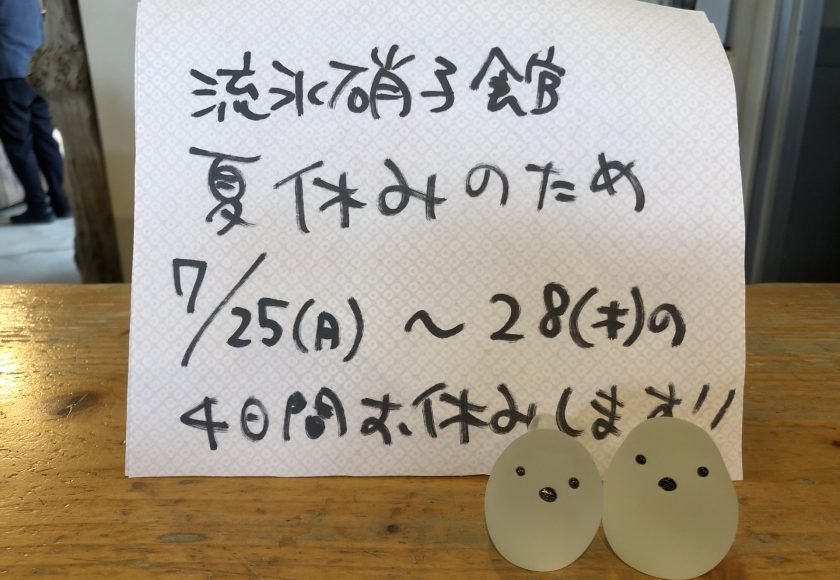 流氷硝子館
夏休みのため
7/25(月)~28(木)の
4日間お休みします!!